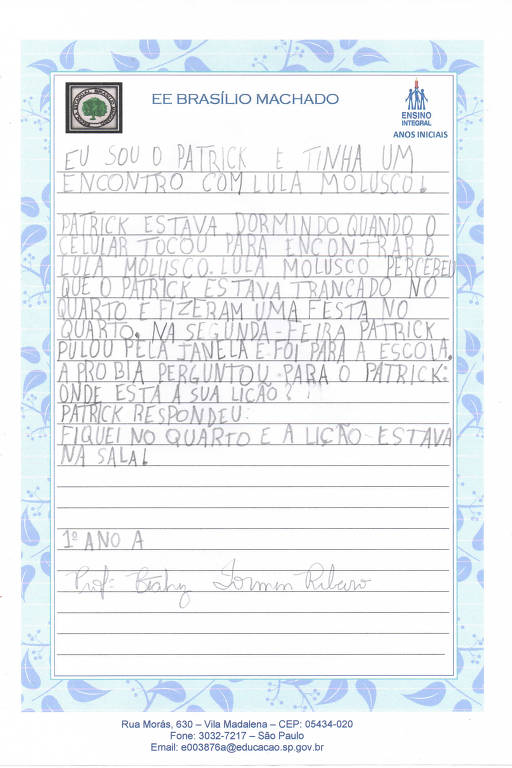 EE BRASÍLIO MACHADO
ENSINO
INTEGRAL
ANOS INICIAIS
EU SOU O PATRICK E TINHA UM
ENCONTRO COM LULA MOLUSCO!
PATRICK ESTAVA DORMINDO QUANDO O
CELULAR TOCOU PARA ENCONTRAR O
LULA MOLUSCO. LULA MOLUSCO PERCEBEU
QUE O PATRICK ESTAVA TRANCADO NO
QUARTO E FIZERAM UMA FESTA NO
QUARTO. NA SEGUNDA-FEIRA PATRICK
PULOU PELA JANELA E FOI PARA A ESCOLA.
A PRO BIA PERGUNTOU PARA O PATRICK:
ONDE ESTÁ A SUA LIÇÃO?
PATRICK RESPONDEU:
FIQUEI NO QUARTO E A LIÇÃO ESTAVA
NA SALA!
1º ANO A
Profª Ribeiro
Rua Morás, 630 – Vila Madalena – CEP: 05434-020
Fone: 3032-7217 – São Paulo
Email: e003876a@educacao.sp.gov.br